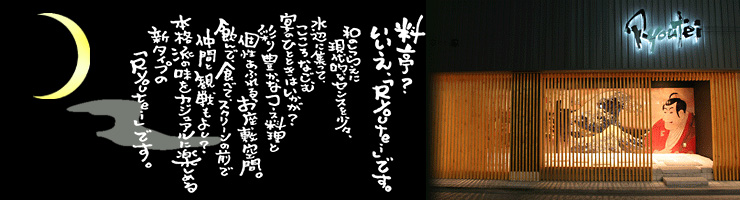 料亭?
いいえ、「Ryoutei」です。
和といった
現代的なセンスを少々、
水辺に集って、
こころもなじむ
宴のひとときはいかが?
彩り豊かなコース料理と
個性あふれるお座敷空間。
飲んで、食べて、スクリーンの前で
仲間と観戦もよし?
本格派の味をカジュアルに楽しめる
新タイプの
「Ryoutei」です。
Ryoutei